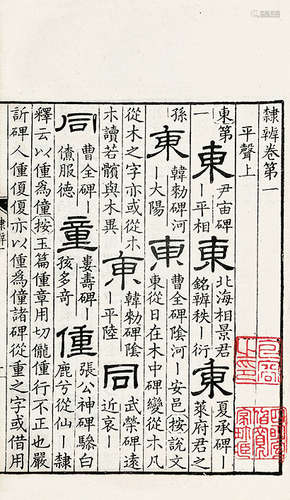 隸辨卷第一
平聲上
東第一 東 尹宙碑—平相 東 北海相景君銘辨秩—衍 東 夏承碑—萊府君之
孫 東 韓勑碑河—大陽 東 曹全碑陰河—安邑按說文東從日在木中碑變從木凡
從木之字亦或從朩朩讀若髕與木異 東 韓勑碑陰—平陸 同 武榮碑遠近哀—
同 曹全碑—僚服德 童 婁壽碑—孩多奇 僮 張公神碑驂白鹿兮從仙—隸
釋云以僮為僮按玉篇僮章用切儱僮行不正也嚴
訢碑人僮亦以僮為僮諸碑從重之字或借用